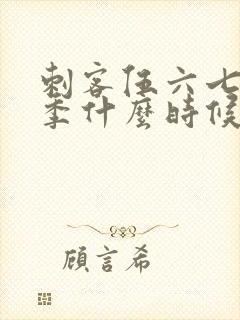 刺客伍六七
季什麼時候
顧言希